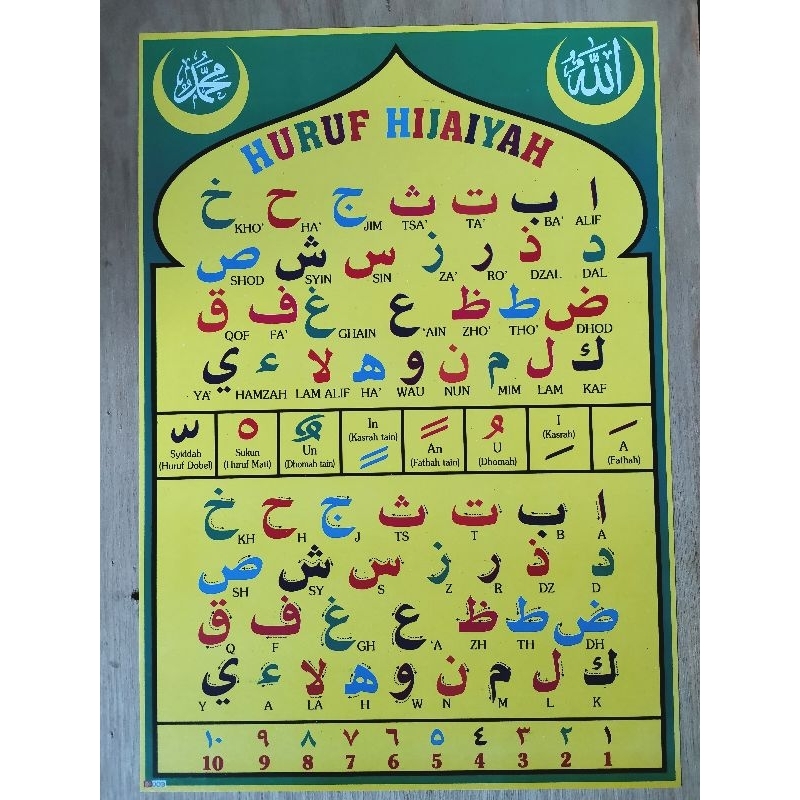 محمد
الله
HURUF HIJAIYAH
ا ب ت ث ج ح خ
ALIF BA' TA' TSA' JIM HA' KHO'
د ذ ر ز س ش ص
DAL DZAL RO' ZA' SIN SYIN SHOD
ض ط ظ ع غ ف ق
DHOD THO' ZHO' 'AIN GHAIN FA' QOF
ك ل م ن و ه لا ء ي
KAF LAM MIM NUN WAU HA' LAM ALIF HAMZAH YA'
Syiddah
(Huruf Dobel)
Sukun
(Huruf Mati)
Un
(Dhomah tain)
In
(Kasrah tain)
An
(Fathah tain)
U
(Dhomah)
I
(Kasrah)
A
(Fathah)
ا ب ت ث ج ح خ
A B T TS J H KH
د ذ ر ز س ش ص
D DZ R Z S SY SH
ض ط ظ ع غ ف ق
DH TH ZH 'A GH F Q
ك ل م ن و ه لا ء ي
K L M N W H LA A Y
١ ٢ ٣ ٤ ٥ ٦ ٧ ٨ ٩ ١٠
1 2 3 4 5 6 7 8 9 10